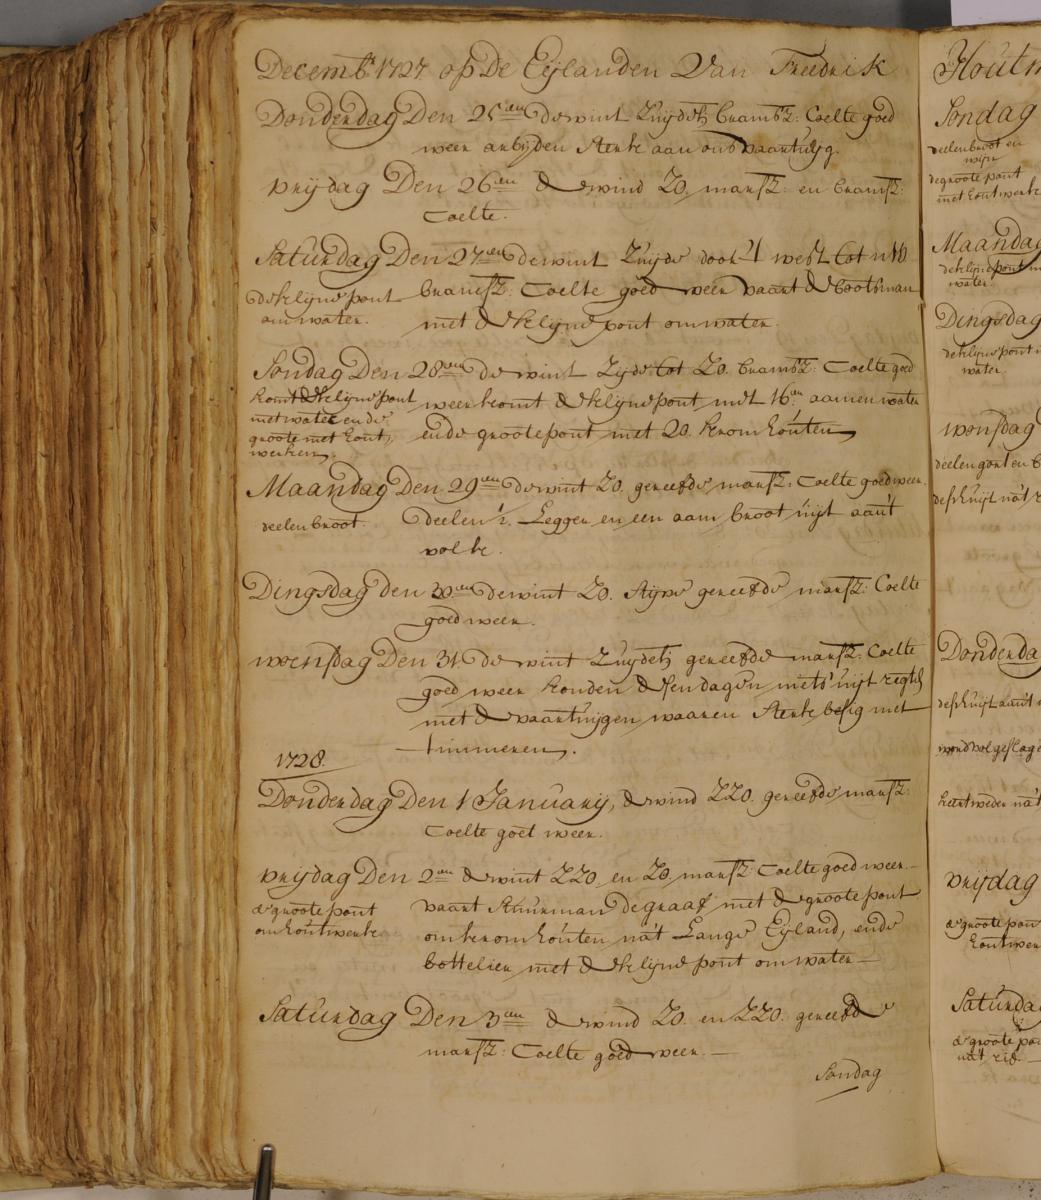 Decemb:r 1727 op De Eijlanden Van Fredrik
Donderdag Den 25:en de wint Zuijdelh bramsz: Coelte goed
weer arbijden sterk aan ons vaartuijg.
vrijdag Den 26:en de wind ZO. marsz: en bramsz:
Coelte.
Saturdag Den 27:en de wint Zuijde door 't west tot
bramsz: Coelte goed weer vaart de bootsman
met de klijne pont om water.
de klijne pont
om water.
Sondag Den 28:en de wint Zijde tot ZO. bramsz: Coelte goed
weer komt de klijne pont met 16:en aamen water
ende groote pont met 20. kromhouten
komt de klijne pont
met water ende
groote met hout,
werken.
Maandag Den 29:en de wint ZO. gereefde marsz: Coelte goed weer.
deelen Legger en een aam broot uijt aan't
volke.
deelen broot.
Dingsdag den 30:en de wint ZO. stijve gereefde marsz: Coelte
goed weer.
woensdag Den 31. de wint Zuijdelh gereefde marsz: Coelte
goed weer konden desen dagen niets uijt regten
met de vaartuijgen waaren sterk besig met
timmeren.
1728.
Donderdag Den 1 Januarij, de wind ZZO. gereefde marsz:
Coelte goet weer.
vrijdag Den 2:en de wint ZZO en ZO marsz: Coelte goed weer.
vaart stuurman de graaf met de groote pont
om kromhouten na't Lange Eijland, ende
bottelier met de klijne pont om water
de groote pont
om houtwerke
Saturdag Den 3:en de wind ZO. en ZZO. gereefde
marsz: Coelte goed weer.
Sondag
Houtm
Sondag
deelen broot en
wijn
de groote pont
met hout werke
Maandag
de klijne pont
water.
Dingsdag
de klijne pont
water.
woensdag
deelen gort en
de schuijt na't
Donderda
de schuijt aan't
word vol geslage
keert weder na't
vrijdag
de groote pon
houtwer
Saturda
de groote po
na't rif.